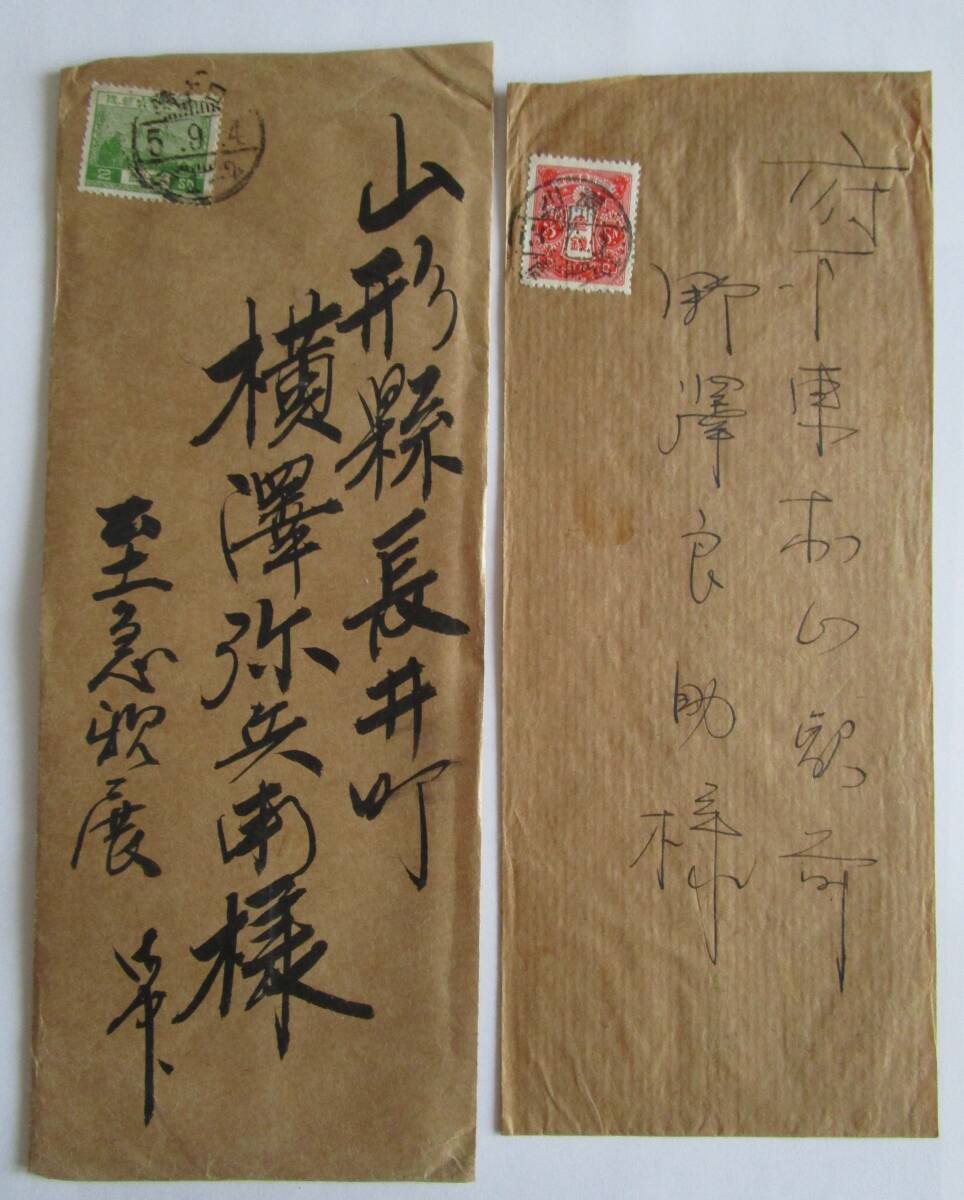 山形縣長井町
横澤弥兵衛様
至急親展
5.9.4
2
府下東村山駅前
野澤良助様